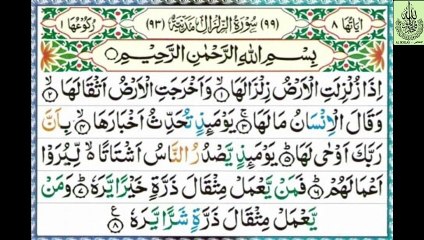 اٰيَاتُهَا ٨ (٩٩) سُوْرَةُ الزِّلْزَالِ مَدَنِيَّةٌ (٩٣) رُكُوْعُهَا ١
بِسْمِ اللّٰهِ الرَّحْمٰنِ الرَّحِيْمِ
اِذَا زُلْزِلَتِ الْاَرْضُ زِلْزَالَهَا ۙ‏﴿١﴾ وَاَخْرَجَتِ الْاَرْضُ اَثْقَالَهَا ۙ‏﴿٢﴾
وَقَالَ الْاِنْسَانُ مَا لَهَا ۚ‏﴿٣﴾ يَوْمَئِذٍ تُحَدِّثُ اَخْبَارَهَا ۙ‏﴿٤﴾ بِاَنَّ
رَبَّكَ اَوْحٰى لَهَا ؕ‏﴿٥﴾ يَوْمَئِذٍ يَّصْدُرُ النَّاسُ اَشْتَاتًا ۙ لِّيُرَوْا
اَعْمَالَهُمْ ؕ‏﴿٦﴾ فَمَنْ يَّعْمَلْ مِثْقَالَ ذَرَّةٍ خَيْرًا يَّرَهٗ ؕ‏﴿٧﴾ وَمَنْ
يَّعْمَلْ مِثْقَالَ ذَرَّةٍ شَرًّا يَّرَهٗ ‏﴿٨﴾